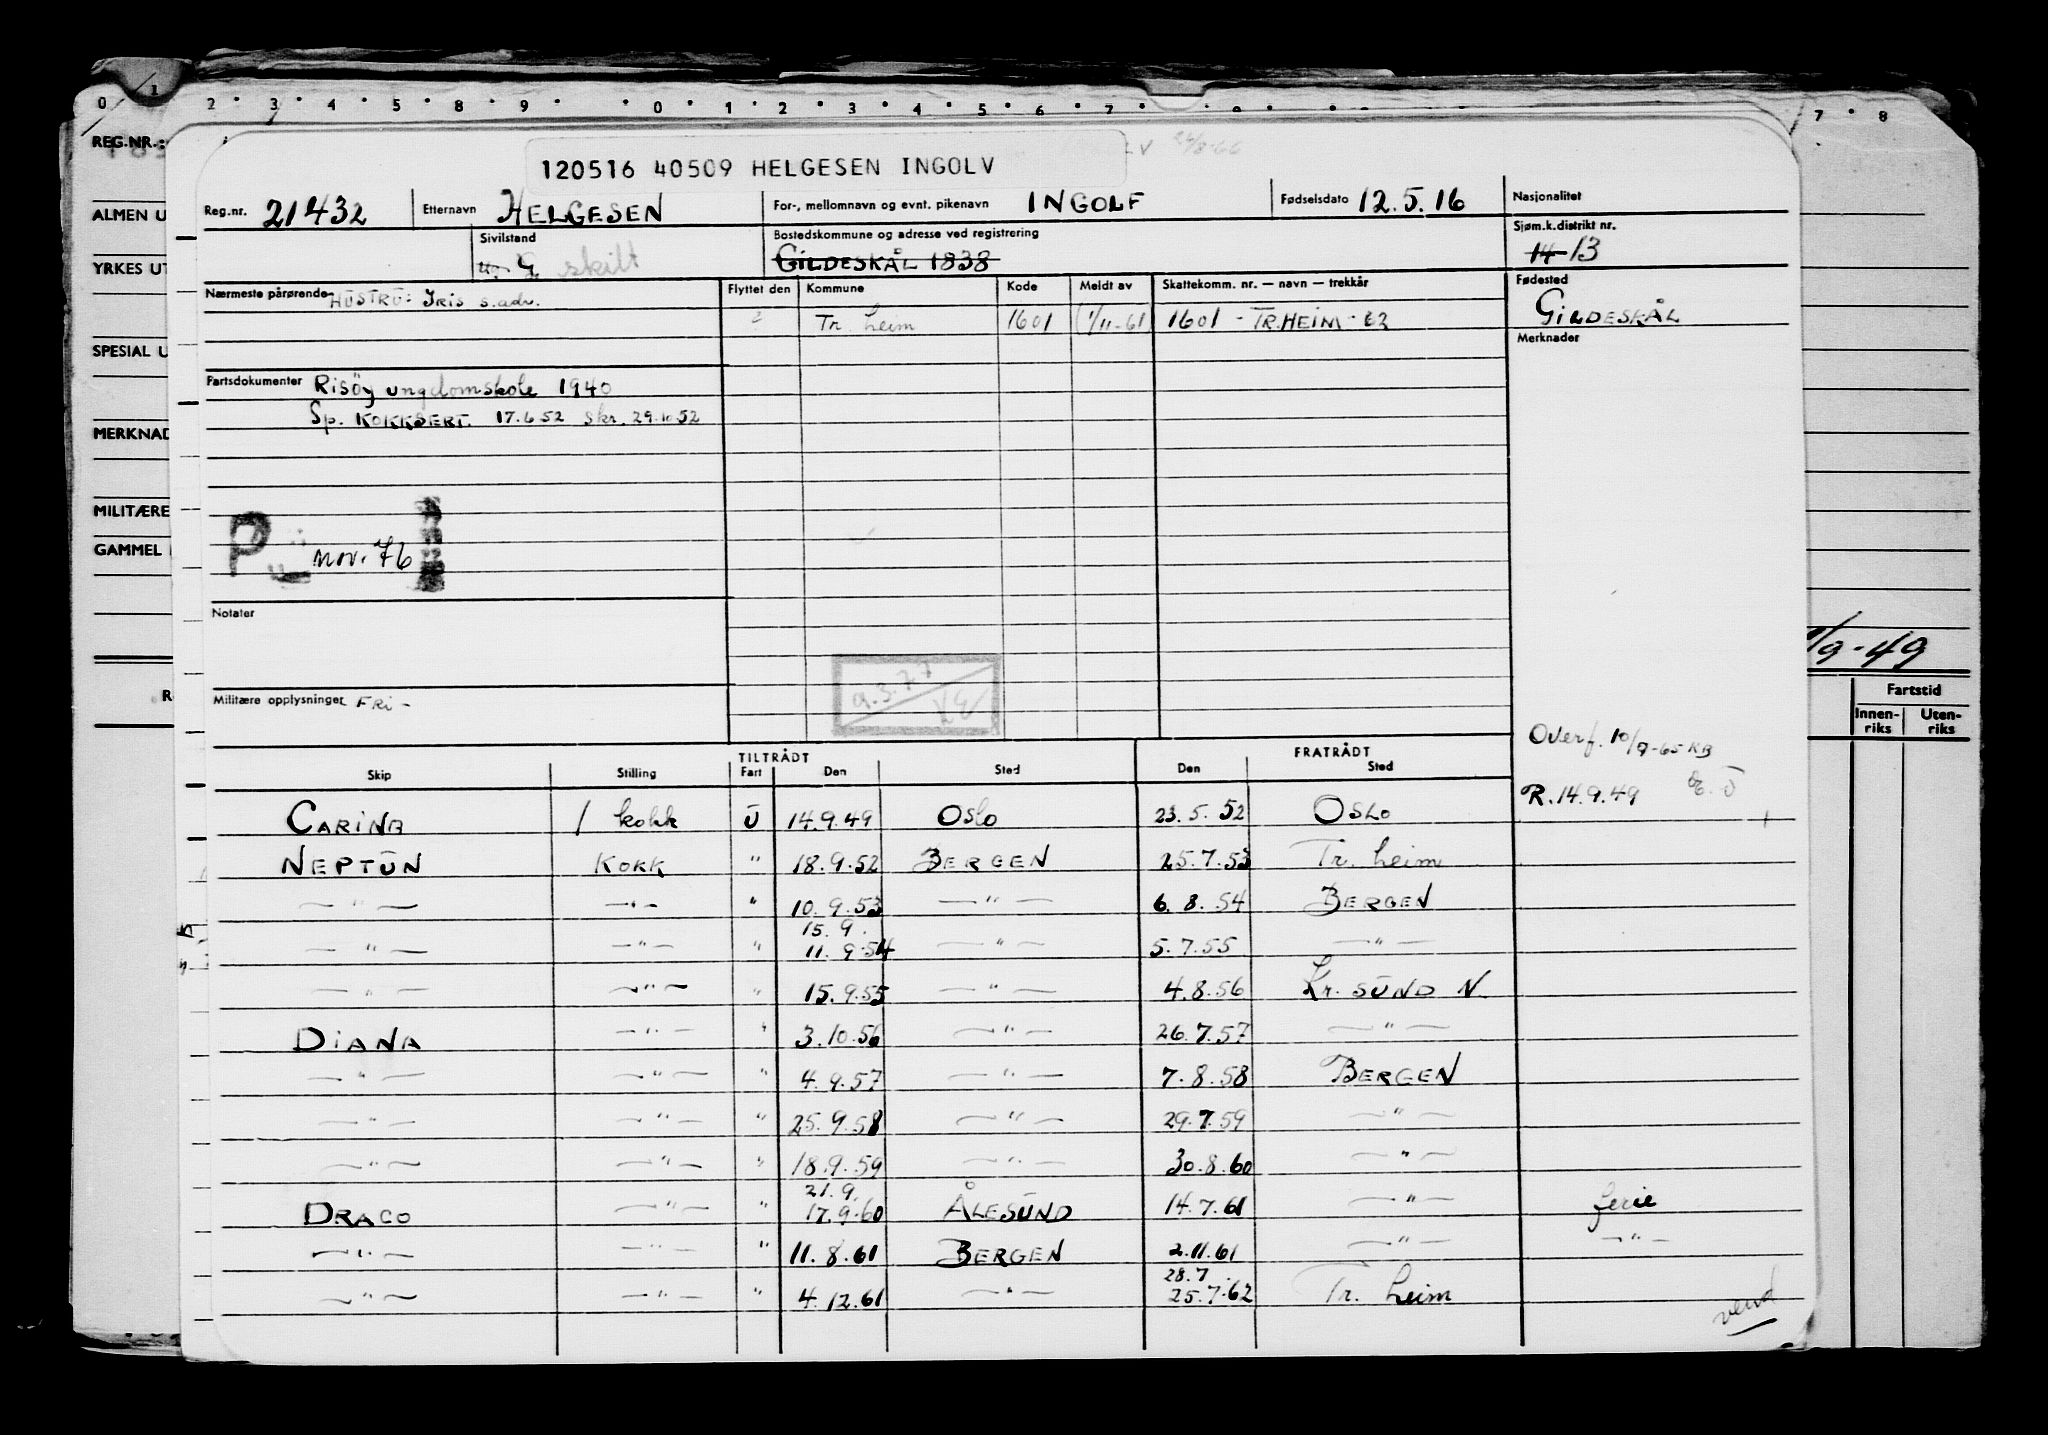 0 1 2 3 4 5 8 9 0 1 2 3 4 5 6 7 9 7 8
REG.NR.:
ALMEN U
YRKES UT
SPESIAL U
MERKNAD
MILITÆRE
GAMMEL
R
120516 40509 HELGESEN INGOLV
Reg.nr. 21432 Etternavn HELGESEN For-, mellomnavn og evnt. pikenavn INGOLF Fødselsdato 12.5.16 Nasjonalitet
Sivilstand G skilt Bostedskommune og adresse ved registrering GILDESKÅL 1838 Sjøm.k.distrikt nr. 14 13
Nærmeste pårørende HUSTRU: IRIS s.adr. Flyttet den Kommune Kode Meldt av Skattekomm. nr. — navn — trekkår Fødested GILDESKÅL
Tr. heim 1601 1/11-61 1601 - TR.HEIM - 62
Merknader
Fartsdokumenter Risöy ungdomskole 1940
Sp. KOKKSERT. 17.6.52 skr. 29.10.52
P nov. 76
Notater
9.3.77
Militære opplysninger FRI -
1/9-49
Fartstid
Innen-riks Uten-riks
Overf. 10/9-65 KB
R. 14.9.49
TILTRÅDT FRATRÅDT
Skip Stilling Fart Den Sted Den Sted
CARINA / kokk U 14.9.49 Oslo 23.5.52 OSLO
NEPTUN KOKK " 18.9.52 BERGEN 25.7.53 Tr. heim
— " — — " — " 10.9.53 — " — 6.8.54 BERGEN
15.9.
— " — — " — " 11.9.54 — " — 5.7.55 — " —
— " — — " — " 15.9.55 — " — 4.8.56 Kr. SUND N.
DIANA — " — " 3.10.56 — " — 26.7.57 — " —
— " — — " — " 4.9.57 — " — 7.8.58 BERGEN
— " — — " — " 25.9.58 — " — 29.7.59 — " —
— " — — " — " 18.9.59 — " — 30.8.60 — " —
21.9.
DRACO — " — " 17.9.60 ÅLESUND 14.7.61 — " — ferie
— " — — " — " 11.8.61 BERGEN 2.11.61 — " — — " —
28.7
— " — — " — " 4.12.61 — " — 25.7.62 Tr. heim
vend